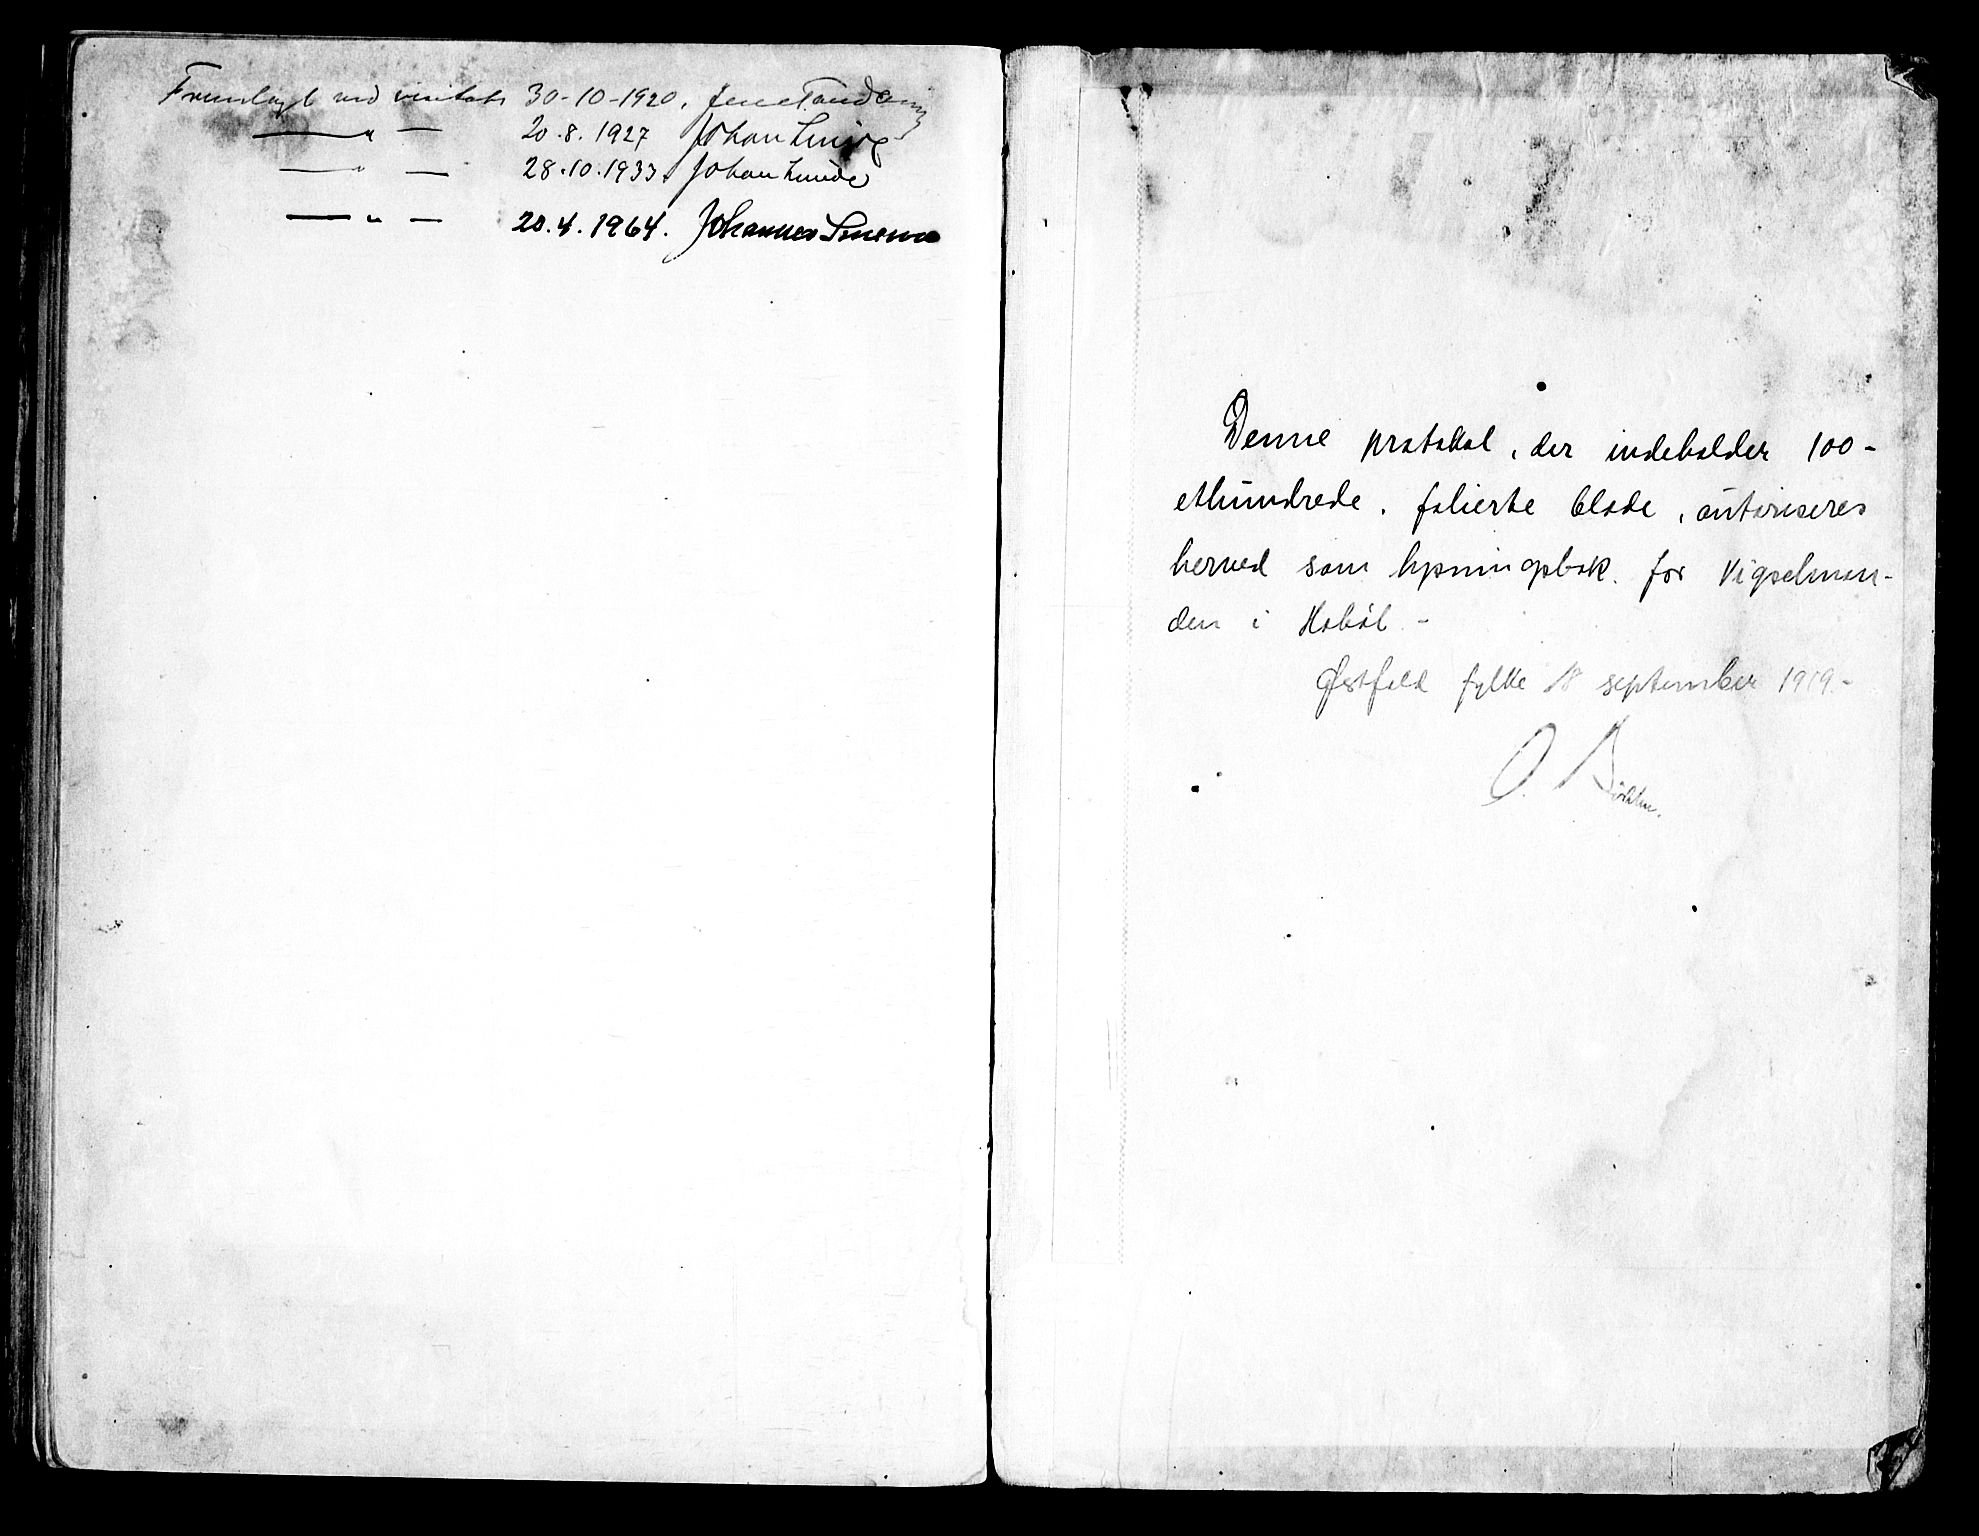 Fremlagt ved visitats 30-10-1920, Jens Tandberg
— " — 20.8.1927 Johan Lunde
— " — 28.10.1933. Johan Lunde
— " — 20.4.1964. Johannes Smemo
Denne protokol, der indeholder 100-
ethundrede. folierte blade, autoriseres
herved som lysningsbok. for Vigselman-
den i Hobøl -
Østfold fylke 18 september 1919.-
O.